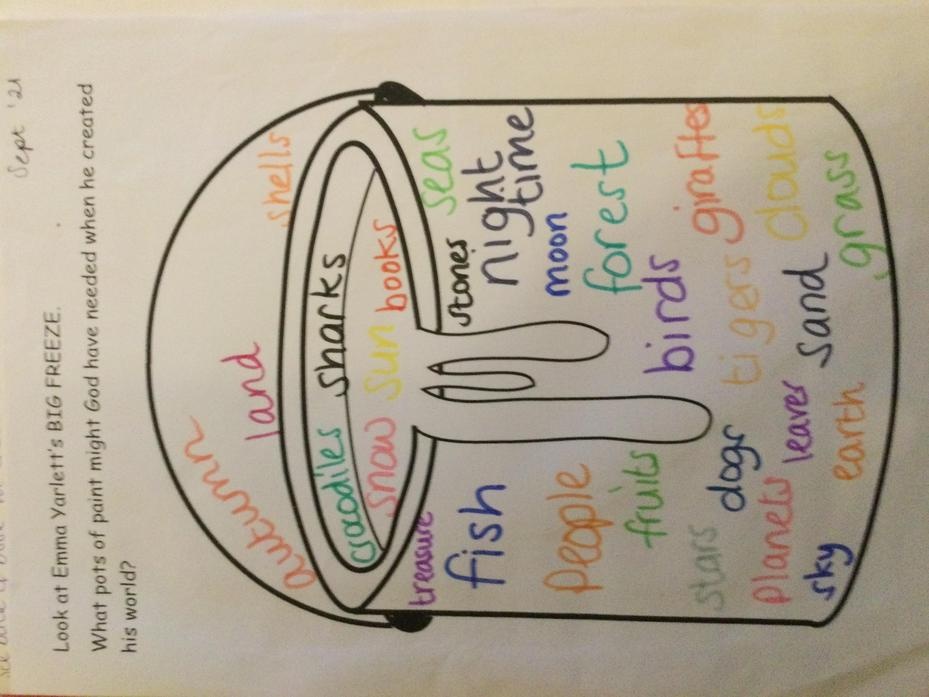 Sept '21
Look at Emma Yarlett's BIG FREEZE.
What pots of paint might God have needed when he created
his world?
autumn
land
shells
crocodiles
sharks
snow
sun
books
treasure
stones
seas
fish
night
time
moon
people
forest
fruits
birds
giraffes
stars
dogs
tigers
clouds
planets
leaves
sand
grass
sky
earth